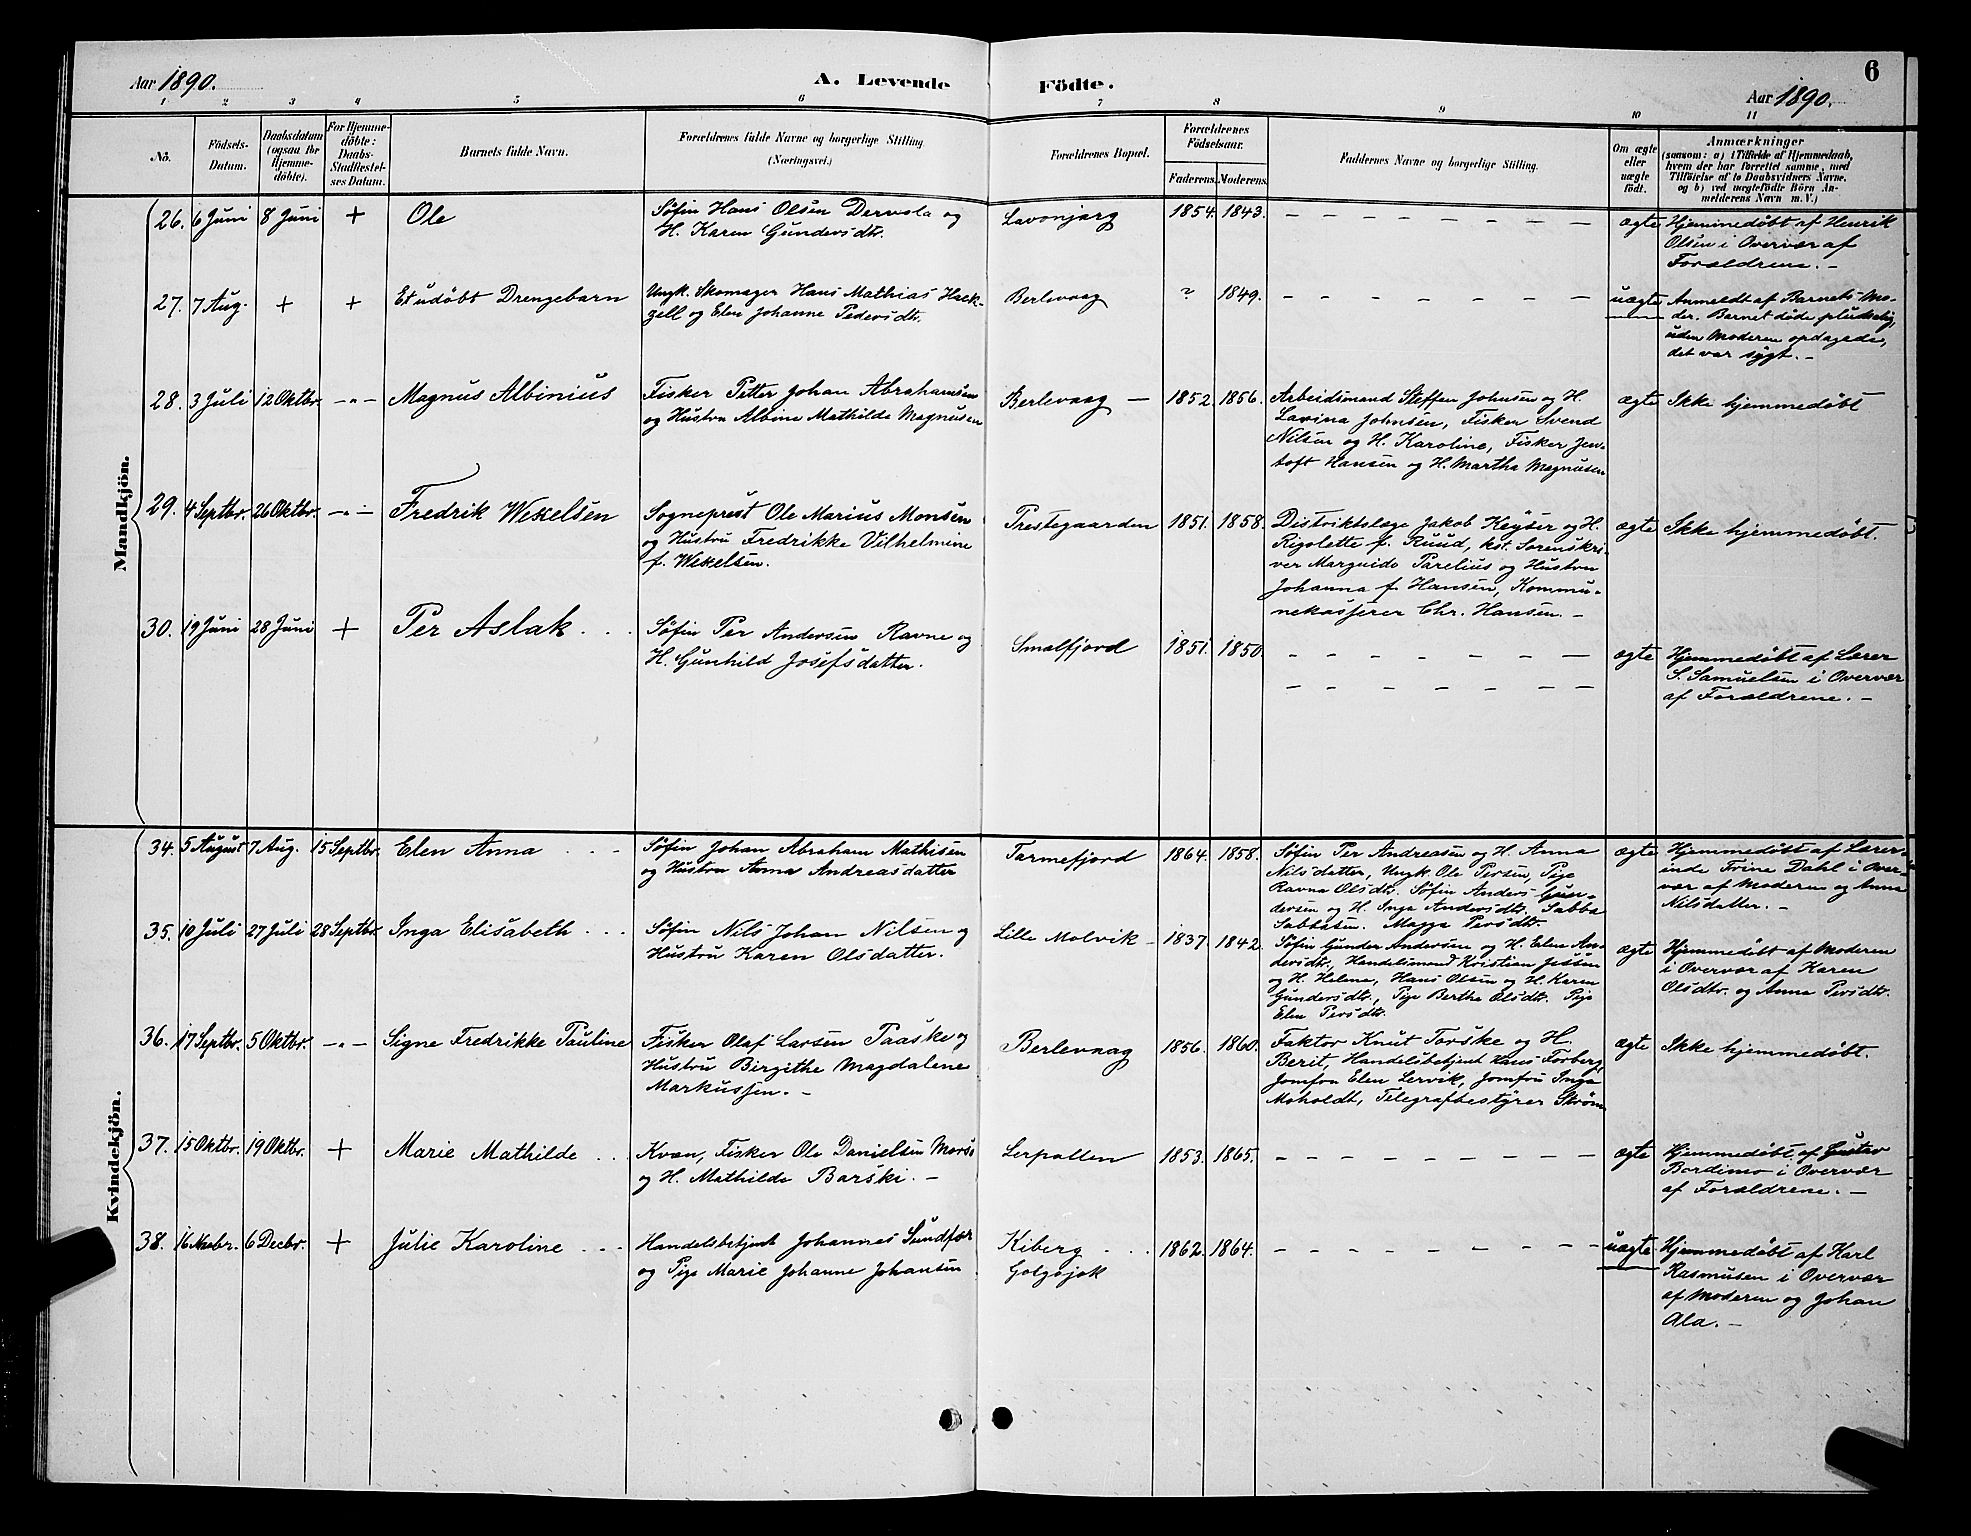 Aar 1890.
A. Levende
Födte.
Aar 1890.
6
1 2 3 4 5 6 7 8 9 10 11
No.
Födsels-
Datum.
Daabsdatum
(ogsaa for
Hjemme-
döbte).
For Hjemme-
döbte:
Daabs-
Stadfæstel-
ses Datum.
Barnets fulde Navn.
Forældrenes fulde Navne og borgerlige Stilling.
(Næringsvei.)
Forældrenes Bopæl.
Forældrenes
Födselsaar.
Faderens. Moderens.
Faddernes Navne og borgerlige Stilling.
Om ægte
eller
uægte
födt.
Anmærkninger
(saasom: a) i Tilfælde af Hjemmedaab,
hvem der har forrettet samme, med
Tilföielse af to Daabsvidners Navne,
og b) ved uægtefödte Börn An-
melderens Navn m. V.)
Mandkjön.
26. 6 Juni 8 Juni + Ole
Søfin Hans Olsen Dervola og
H. Karen Gundersdtr.
Lavonjarg 1854. 1843. – – – – – – – – ægte
Hjemmedøbt af Henrik
Olsen i Overvær af
Forældrene. –
27. 7 Aug. + + Et udøbt Drengebarn
Ungk. Skomager Hans Mathias Hæk-
zell og Elen Johanne Pedersdtr.
Berlevaag ? 1849. – – – – – – – – uægte
Anmeldt af Barnets Mo-
der. Barnet døde pludselig,
uden Moderen opdagede,
det var sygt. –
28. 3 Juli 12 Oktbr. –"– Magnus Albinius
Fisker Petter Johan Abrahamsen
og Hustru Albine Mathilde Magnusen
Berlevaag – 1852. 1856.
Arbeidsmand Steffen Johnsen og H.
Lavina Johnsen, Fisker Svend
Nilsen og H. Karoline, Fisker Jen-
toft Hansen og H. Martha Magnusen
ægte Ikke hjemmedøbt
29. 4 Septbr. 26 Oktbr. –"– Fredrik Wexelsen
Sogneprest Ole Marius Monsen
og Hustru Fredrikke Vilhelmine
f. Wexelsen.
Prestegaarden 1851. 1858.
Distriktslæge Jakob Keyser og H.
Rigolette f. Ruud, kst. Sorenskri-
ver Marguido Parelius og Hustru
Johanna f. Hansen, Kommu-
nekasserer Chr. Hansen. –
ægte Ikke hjemmedøbt.
30. 19 Juni 28 Juni + Per Aslak . . .
Søfin Per Andersen Ravne og
H. Gunhild Josefsdatter.
Smalfjord 1851. 1850. – – – – – – –
– – – – – – –
ægte Hjemmedøbt af Lærer
S. Samuelsen i Overvær
af Forældrene. –
Kvindekjön.
34. 5 August 7 Aug. 15 Septbr. Elen Anna . . –
Søfin Johan Abraham Mathisen
og Hustru Anna Andreasdatter
Tarmefjord 1864. 1858.
Søfin Per Andreasen og H. Anna
Nilsdatter, Ungk. Ole Persen, Pige
Ravna Olsdtr. Søfin Anders Gun-
dersen og H. Inga Andersdtr. Sabba
Sabbasen. Magga Persdtr.
ægte Hjemmedøbt af Lærer-
inde Trine Dahl i Over-
vær af Moderen og Anna
Nilsdatter. –
35. 10 Juli 27 Juli 28 Septbr. Inga Elisabeth . . .
Søfin Nils Johan Nilsen og
Hustru Karen Olsdatter.
Lille Molvik – 1837. 1842.
Søfin Gunder Andersen og H. Elen An-
dersdtr., Handelsmand Kristian Jessen
og H. Helene, Hans Olsen og H. Karen
Gundersdtr., Pige Berthe Olsdtr. Pige
Elen Persdtr.
ægte Hjemmedøbt af Moderen
i Overvær af Karen
Olsdtr. og Anna Persdtr.
36. 17 Septbr. 5 Oktbr. –"– Signe Fredrikke Pauline
Fisker Olaf Larsen Paaske og
Hustru Birgithe Magdalene
Markussen. –
Berlevaag 1856. 1860.
Faktor Knut Torske og H.
Berit, Handelsbetjent Hans Forberg,
Jomfru Elen Lervik, Jomfru Inga
Moholdt, Telegrafbestyrer Strøm
ægte Ikke hjemmedøbt.
37. 15 Oktbr. 19 Oktbr. + Marie Mathilde . .
Kvæn, Fisker Ole Danielsen Mors
og H. Mathilde Barski. –
Lerpollen 1853. 1865. – – – – – – – –
ægte Hjemmedøbt af Gustav
Bordimo i Overvær
af Forældrene. –
38. 16 Novbr. 6 Decbr. + Julie Karoline . . .
Handelsbetjent Johannes Sundfær
og Pige Marie Johanne Johansen
Kiberg . . .
Golgojok
1862. 1864. – – – – – – – –
uægte Hjemmedøbt af Karl
Rasmusen i Overvær
af Moderen og Johan
Ala. –